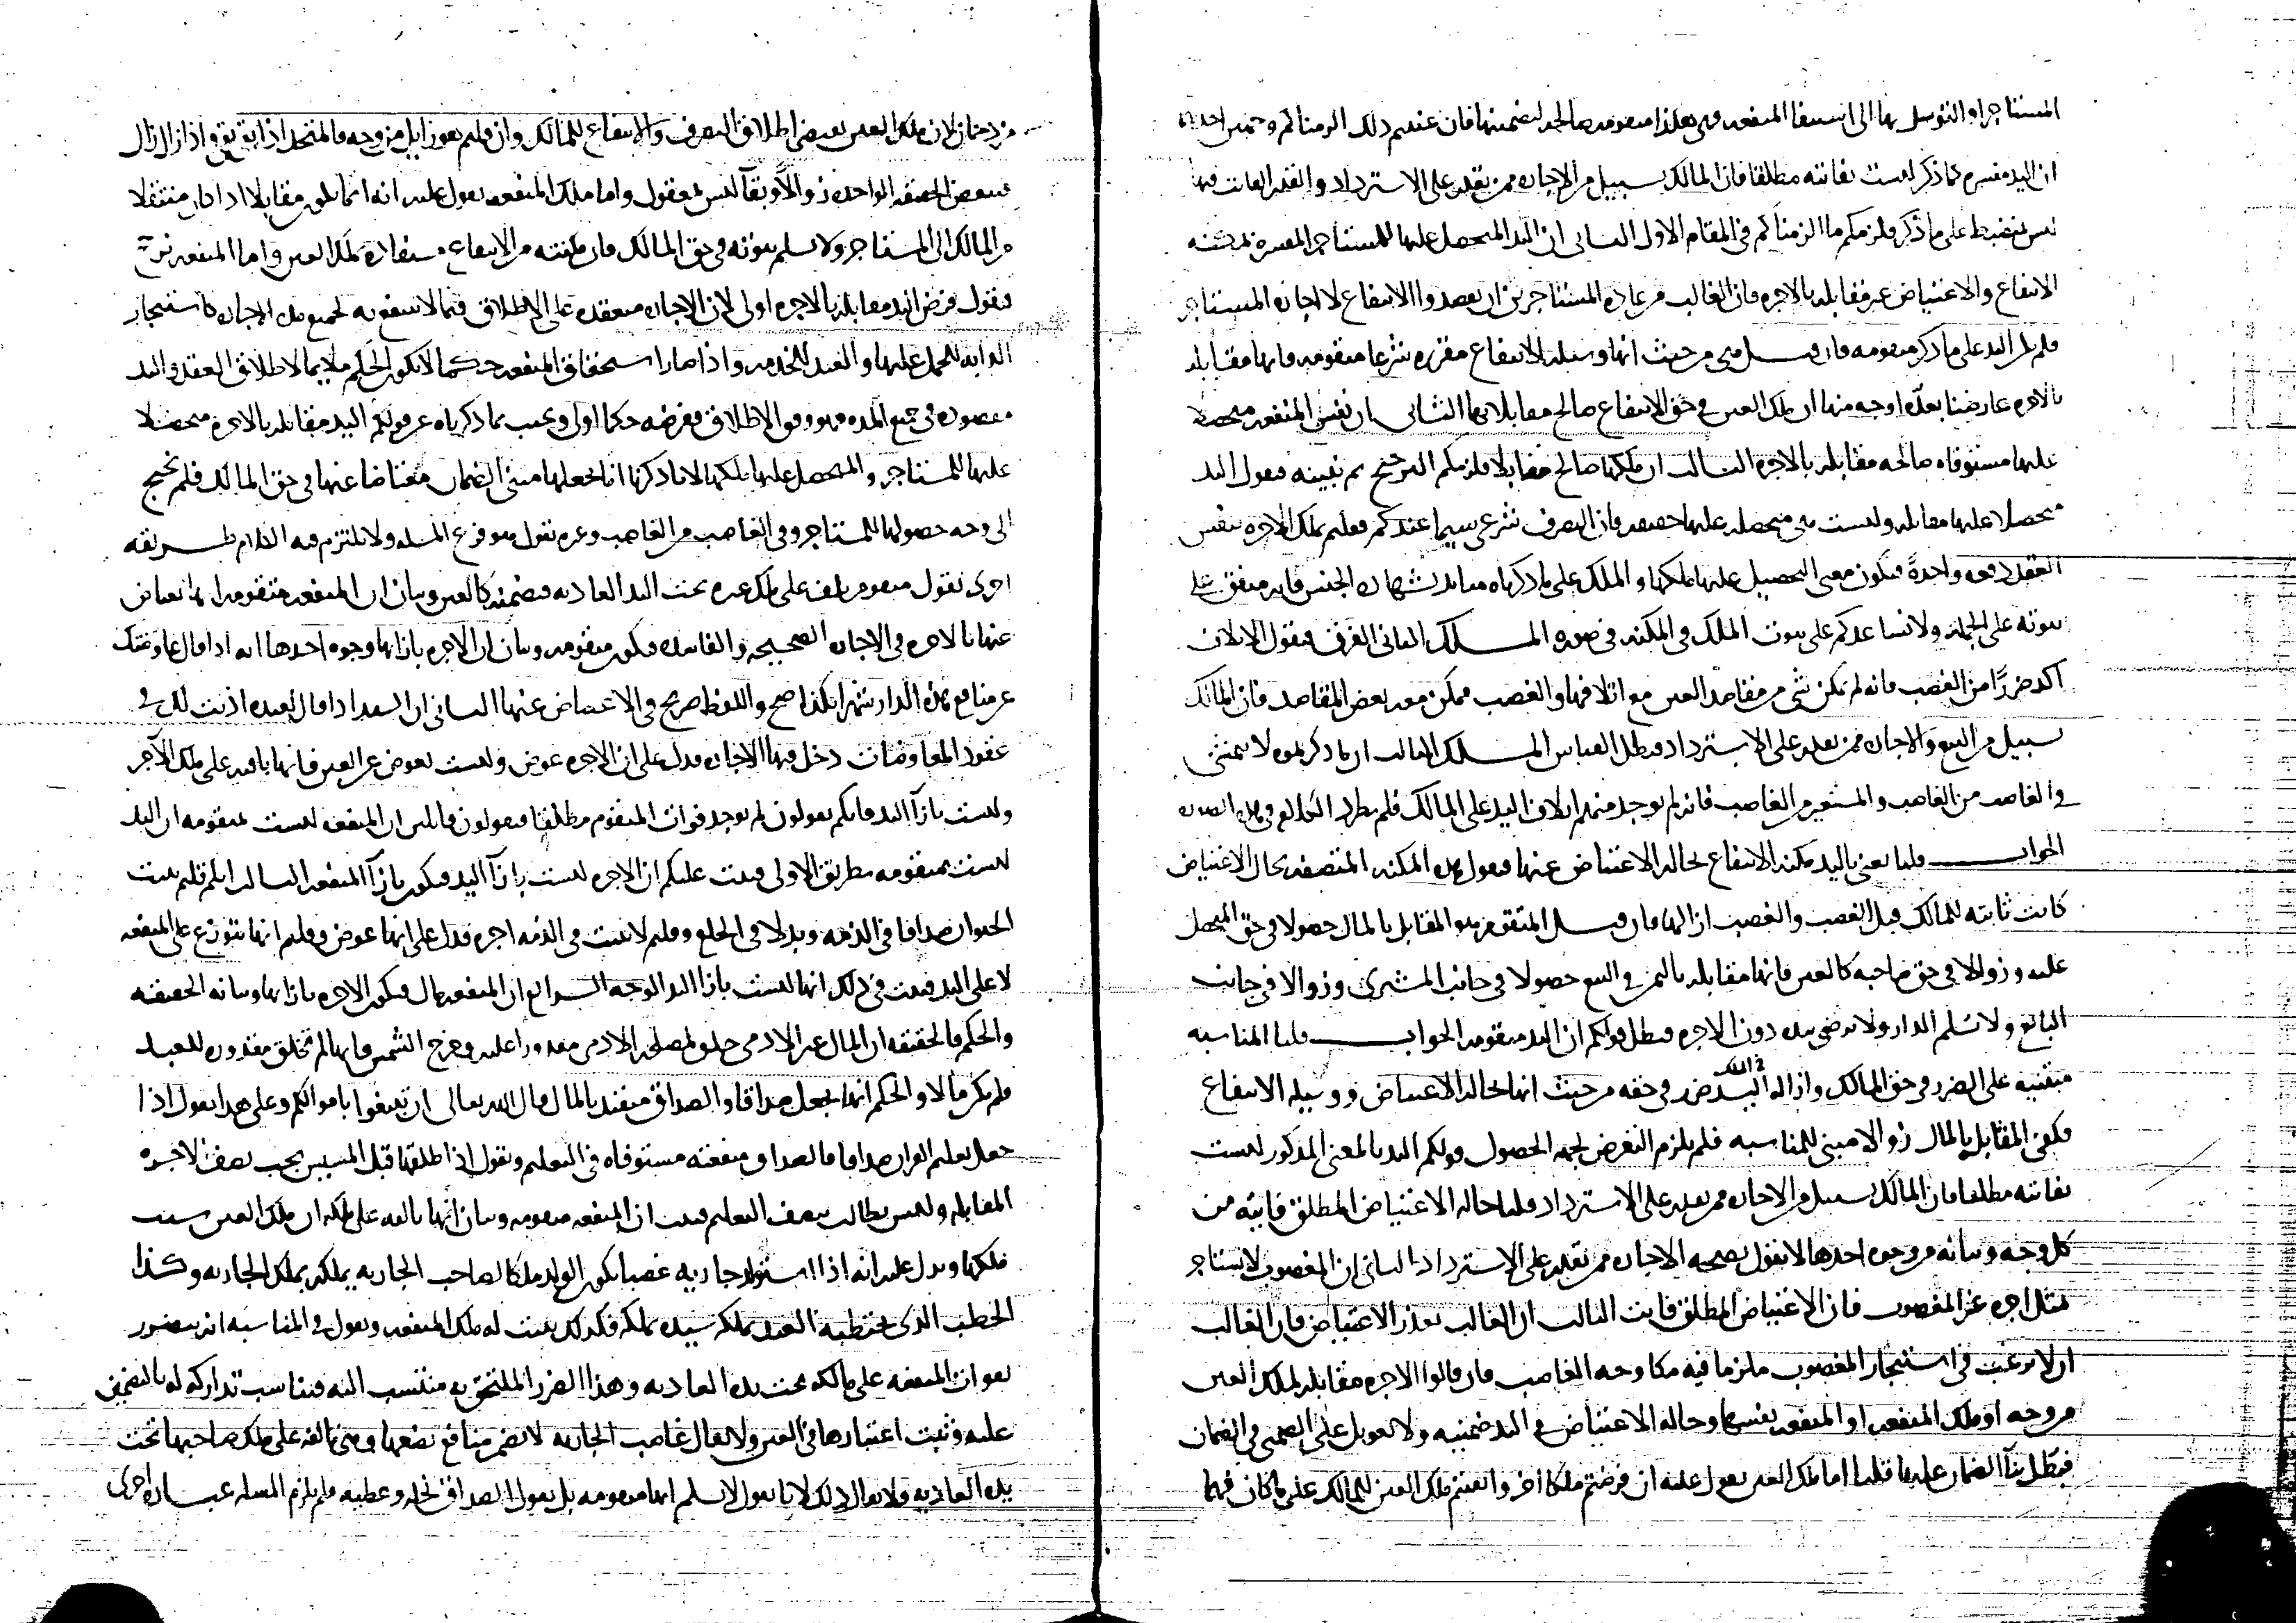 المستاجر او التوسل بها الى استيفا المنفعه فهي بهذا متقومه صالحه لتضمينها فان عنيتم ذلك الزمناكم
ان اليد مفسره بما ذكر ليست بفائته مطلقا فان المالك بسبيل من الاجاره ممن يقدر على الاسترداد والقدر الفائت فيها
ليس بمنضبط على ما ذكر فلزمكم ما الزمناكم في المقام الاول الثاني ان اليد المتحصل عليها للمستاجر المفسره بمكنته
الانتفاع والاعتياض غير مقابله بالاجره فان الغالب من عاده المستاجرين ان يقصدوا الانتفاع لا اجاره المستاجر
فلم تكن اليد على ما ذكر متقومه فان قيل هي من حيث انها وسيله للانتفاع مقرره شرعا متقومه فانها مقابله
بالاجره عارضنا بعده اوجه منها ان ملك العين في حق الانتفاع صالح مقابلا بها الثاني ان نفس المنفعه متحصلا
عليها مستوفاه صالحه مقابله بالاجره الثالث ان ملكها صالح مقابلا فلزمكم الترجيح ثم نبينه فنقول اليد
متحصلا عليها مقابله وليست هي متحصله عليها حقيقه فان التصرف شرعي سيما عندكم فعلم تملك الاجره بنفس
العقد دفعه واحده فيكون معنى التحصيل عليها ملكها والملك على ما ذكرناه متايد بشهاده الجنس فانه متفق على
ثبوته على الجمله ولا نساعدكم على ثبوت الملك في المكنه في صوره المسلك الثاني الفرق فنقول الاتلاف
اكد ضررا من الغصب فانه لم يكن شي من مقاصد العين مع اتلافها والغصب ممكن معه بعض المقاصد فان المالك
بسبيل من البيع والاجاره ممن يقدر على الاسترداد فبطل القياس المسلك الثالث ان ما ذكرتموه لا يتمشى
في الغاصب من الغاصب والمستعير من الغاصب فانه لم يوجد منهم اتلاف اليد على المالك فلم يطرد الدليل في هذه الصوره
الجواب قلنا نعني باليد مكنه الانتفاع بحاله الاعتياض عنها فنقول هذه المكنه المتصفه بحال الاعتياض
كانت ثابته للمالك قبل الغصب والغصب ازالها فان قيل المتقوم هو المقابل بالمال حصولا في حق المتحصل
عليه وزوالا في حق صاحبه كالعين فانها مقابله بالثمن في البيع حصولا في جانب المشتري وزوالا في جانب
البائع ولا نسلم الدار ولا نرضى بيده دون الاجره فبطل قولكم ان اليد متقومه الجواب قلنا المناسبه
مبتنيه على الضرر في حق المالك وازاله اليد ضرر في حقه من حيث انها بحاله الاعتياض ووسيله الانتفاع
فكفى المقابل بالمال زوالا مبنى للمناسبه فلم يلزم التعرض لجهه الحصول قولكم اليد بالمعنى المذكور ليست
بفائته مطلقا فان المالك بسبيل من الاجاره ممن يقدر على الاسترداد قلنا حاله الاعتياض المطلق فائته من
كل وجه وبيانه من وجوه احدها لا نقول بصحه الاجاره ممن يقدر على الاسترداد الثاني ان المغصوب لا يستاجر
بمثل اجره غير المغصوب فان الاعتياض المطلق فايت الثالث ان الغالب تعذر الاعتياض فان الغالب
ان لا يرغب في استيجار المغصوب ملتزما فيه مكاوحه الغاصب فان قالوا الاجره مقابله بملك العين
من وجه او ملك المنفعه او المنفعه بنفسها وحاله الاعتياض في اليد ضمنيه ولا تعويل على الضمني في الضمان
فبطل بنآ الضمان عليها قلنا اما ملك العين يقول عليه ان فرضتم ملكا اخر وابقيتم ملك العين للمالك على ما كان فهما
مزدحمان لان ملك العين يقتضى اطلاق التصرف والانتفاع للمالك وان قلتم هو زايل من وجه فالمتحد اذا بقي بقي واذا زال زال
فتبعض الحقيقه الواحده زوالا وبقآ ليس بمعقول واما ملك المنفعه يقول عليه انه انما يكون مقابلا اذا كان منتقلا
من المالك الى المستاجر ولا نسلم ثبوته في حق المالك فان مكنته من الانتفاع مستفاده بملك العين واما المنفعه
فنقول فرض اليد مقابله بالاجره اولى لان الاجاره منعقده على الاطلاق فيما لا ينتفع به لجميع مده الاجاره كاستيجار
الدابه للحمل عليها والعبد للخدمه واذا صار استحقاق المنفعه حكما لا يكون الحكم ملايما لاطلاق العقد واليد
مقصوده في جميع المده فهو وفق الاطلاق ففرضه حكما اولى ونجيب بما ذكرناه عن قولكم اليد مقابله بالاجره متحصلا
عليها للمستاجر والمتحصل عليها ملكها لانا ذكرنا انا نجعلها مبنى الضمان معتاضا عنها في حق المالك فلم نحتج
الى وجه حصولها للمستاجر وفي الغاصب من الغاصب وغيره نقول هو فرع المسله ولا نلتزم فيه الكلام طريقه
اخرى نقول متقوم تلف على ملك غيره تحت اليد العاديه فيضمنه كالعين وبيان ان المنفعه متقومه انها يعتاض
عنها بالاجره في الاجاره الصحيحه والفاسده فيكون متقومه وبيان ان الاجره بازائها وجوه احدها انه اذا قال عاوضتك
عن منافع هذه الدار شهرا بكذا صح واللفظ صريح في الاعتياض عنها الثاني ان السيد اذا قال لعبده اذنت لك في
عقود المعاوضات دخل فيها الاجاره فدل على ان الاجره عوض وليست بعوض عن العين فانها باقيه على ملك الآجر
وليست بازآ اليد فانكم تقولون لم يوجد فوات المتقوم مطلقا فيقولون قابلين ان المنفعه ليست بمتقومه ان اليد
ليست بمتقومه بطريق الاولى فيثبت عليكم ان الاجره ليست بازآ اليد فيكون بازآ المنفعه الثالث انكم قلتم يثبت
الحيوان صداقا في الذمه وبدلا في الخلع وقلتم لا يثبت في الذمه اجره فدل على انها عوض وقلتم انها تتوزع على المنفعه
لا على اليد فيثبت في ذلك انها ليست بازا اليد الوجه الرابع ان المنفعه مال فيكون الاجره بازائها وبيانه الحقيقه
والحكم فالحقيقه ان المال غير الادمي خلق لمصلحه الادمي مقدورا عليه وخرج الشمس فانها لم تخلق مقدوره للعبد
فلم يكن مالا والحكم انها تجعل صداقا والصداق متقيد بالمال قال الله تعالى ان تبتغوا باموالكم وعلى هذا نقول اذا
جعل تعليم القران صداقا فالصداق منفعته مستوفاه في التعليم ونقول اذا طلقها قبل المسيس يجب نصف الاجره
المقابله وليس يطالب بنصف التعليم فيثبت ان المنفعه متقومه وبيان انها تالفه على ملكه ان ملك العين سبب
ملكها ويدل عليه انه اذا استولد جاريه غصبا يكون الولد ملكا لصاحب الجاريه يملكه بملك الجاريه وكذا
الحطب الذي يحتطبه العبد يملكه سيده بملكه فكذلك يثبت له ملك المنفعه ونقول في المناسبه انه يتضرر
بفوات المنفعه على مالكه تحت يده العاديه وهذا الضرر الملتحق به منتسب اليه فيناسب تداركه له بالتضمين
عليه وثبت اعتبارها في العين ولا يقال غاصب الجاريه لا يضمن منافع بضعها وهي تالفه على ملك صاحبها تحت
يده العاديه ولا يقال ذلك لانا نقول لا نسلم انها متقومه بل نقول الصداق نحله وعطيه فلم يلزم المسله عباره اخرى